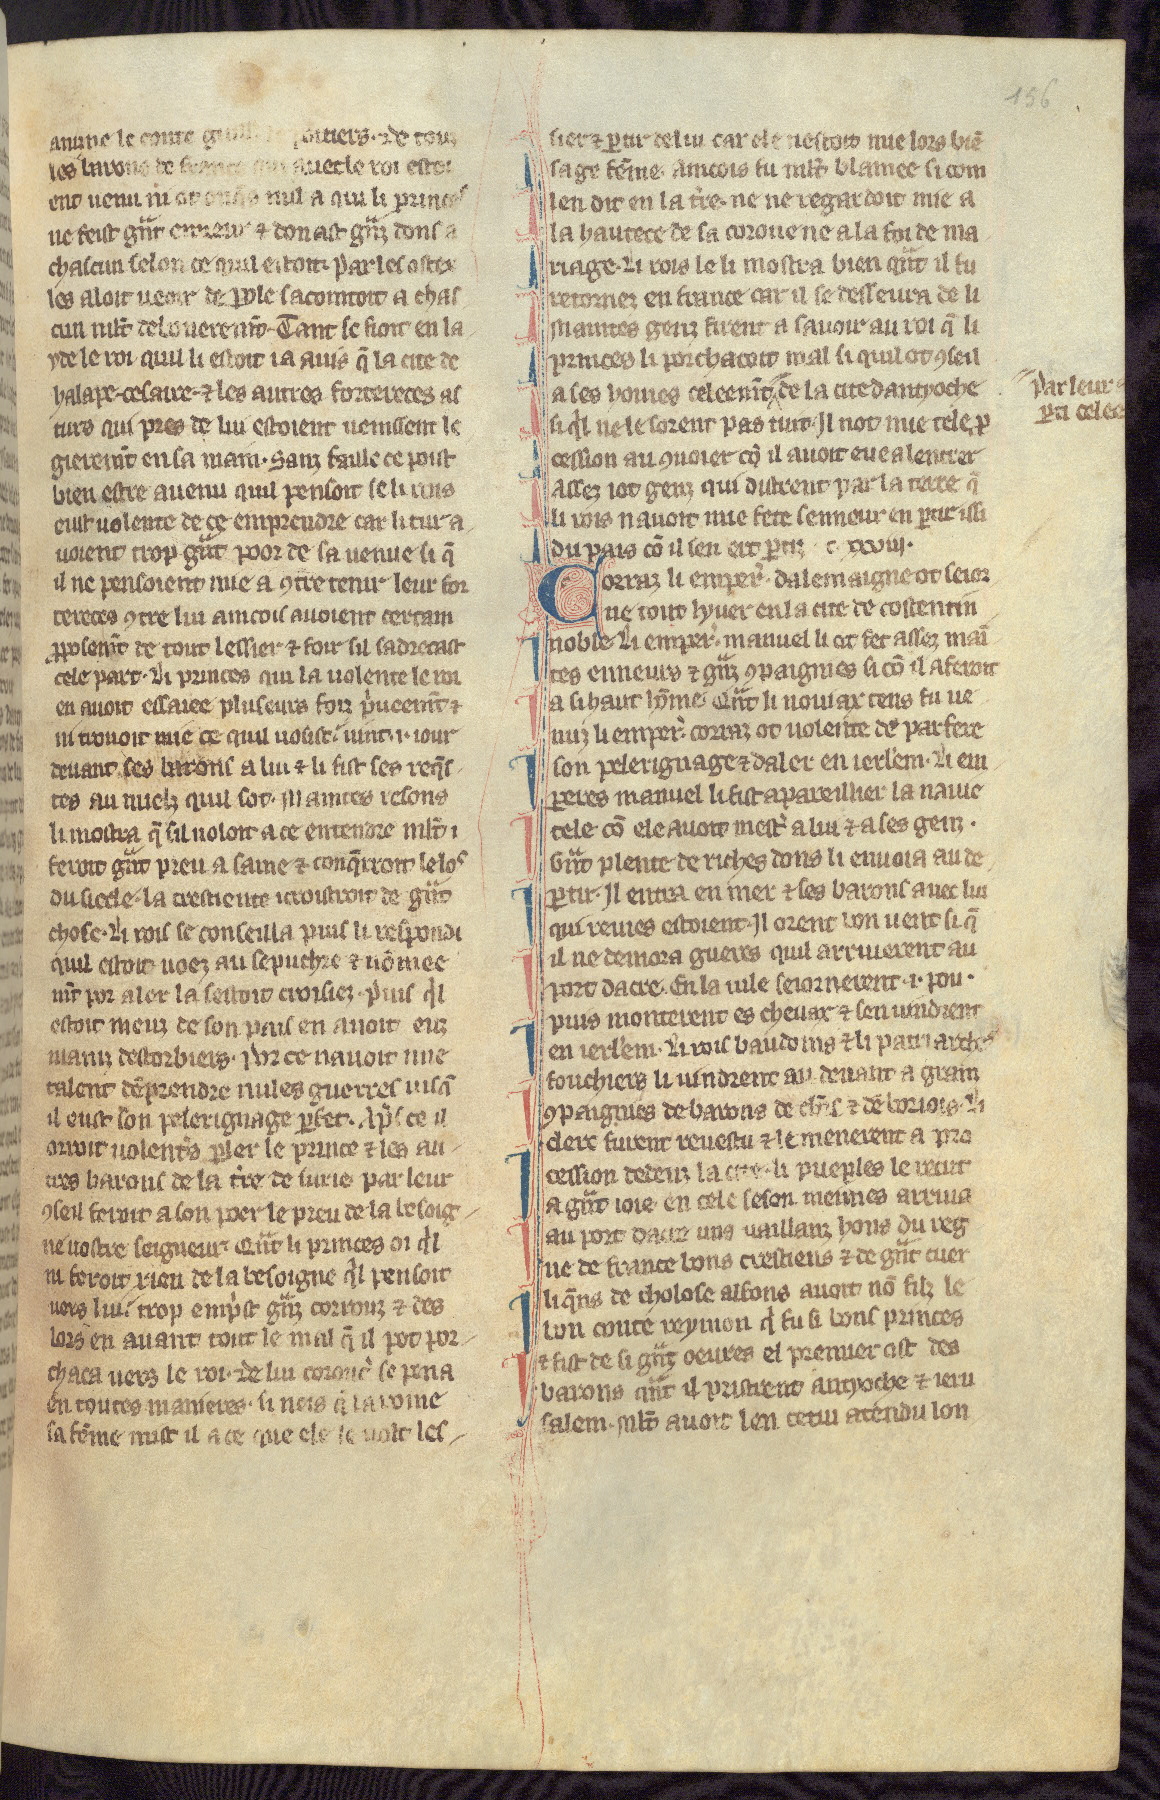 156
anuue le conte de poitiers. ⁊ de touz
les barons de france qui auec le roi estoi
ent uenu ni ot onq̄s nul a qui li princes
ne feist gͣnt enneur ⁊ donast gͣnz dons a
chascun selon ce quil estoit. par les ostex
les aloit ueoir de parole sacointoit a chas
cun ml̄t debonerem̄t. Tant se fioit en la
yde le roi quil li estoit ia auis q̄ la cite de
halape. cesaire. ⁊ les autres fortereces as
turs qui pres de lui estoient uenissent le
gierem̄t en sa main. Sanz faille ce poist
bien estre auenu quil pensoit se li rois
eust uolente de ce emprendre car li tur a
uoient trop gͣnt poor de sa uenue si q̄
il ne pensoient mie a ꝯtretenir leur for
tereces ꝯtre lui aincois auoient certain
ꝓposem̄t de tout lessier ⁊ foir sil sadrecast
cele part. Li princes qui la uolente le roi
en auoit essaiee pluseurs foiz p̓ueem̄t ⁊
ni trouoit mie ce quil uosist. uint .i. iour
deuant ses barons a lui ⁊ li fist ses req̄s
tes au mielz quil sot. Maintes resons
li mostra q̄ sil uoloit a ce entendre ml̄t i
feroit gͣnt preu a same ⁊ conq̄rroit le los
du siecle. la crestiente icroistroit de gͣnt
chose. Li rois se conseilla puis li respondi
quil estoit uoez au sepuchre ⁊ nōmee
m̄t por aler la sestoit croisiez. puis q̓l
estoit meuz de son pais en auoit euz
mainz destorbiers. por ce nauoit mie
talent dēprendre nules guerres iusq̄
il eust son pelerignage ꝑfet. Ap̄s ce il
orroit uolent̓s ꝑler le prince ⁊ les au
tres barons de la t̓re de surie. par leur
ꝯseil feroit a son poer le preu de la besoig
ne nostre seigneur. Qͣnt li princes oi q̓l
ni feroit rien de la besoigne q̓l pensoit
uers lui. trop emp̓st gͣnz corrouz ⁊ des
lors en auant tout le mal q̄ il pot por
chaca uers le roi. ⁊ de lui coroucͥ se pena
en toutes manieres. si neis q̄ la roine
sa fēme mist il a ce que ele le uolt les
sier ⁊ ꝑtir de lui car ele nestoit mie lors biē
sage fēme. Aincois fu ml̄t blamee si com
len dit en la t̓re. ne ne regardoit mie a
la hautece de sa coroune ne a la foi de ma
riage. Li rois le li mostra bien qͣnt il fu
retornez en france car il se desseura de li
Maintes genz firent a sauoir au roi q̄ li
princes li porchacoit mal si quil ot ꝯseil
a ses homes celeem̄t de la cite dantyoche
si q̓l ne le sorent pas tuit. Il not mie tele ꝓ
par leur
ꝑti celee
cession au ꝯuoier cō il auoit eue a lentrer
Assez iot genz qui distrent par la terre q̄
li rois nauoit mie fete senneur en ꝑtir issi
du pais cō il sen ert ꝑtiz. c. xxviij.
Corraz li emper̓. dalemaigne ot seior
ne tout lyuer en la cite de costentin
noble. Li emper̓. manuel li ot fet assez mai
tes enneurs ⁊ gͣnz ꝯpaignies si cō il aferoit
a si haut hōme. Qͣnt li nouiax tens fu ue
nuz li emper̓. corraz ot uolente de parfere
son pelerignage ⁊ daler en ierl̄em. Li em
ꝑeres manuel li fist apareillier la nauie
tele cō ele auoit mest̓ a lui ⁊ a ses genz.
Gͣnt plente de riches dons li enuoia au de
ꝑtir. Il entra en mer ⁊ ses barons auec lui
qui remes estoient. Il orent bon uent si q̄
il ne demora gueres quil arriuerent au
port dacre. En la uile seiornerent .i. pou.
puis monterent es cheuax ⁊ sen uindrent
en ierl̄em. Li rois baudoins ⁊ li patriarches
fouchiers li uindrent au deuant a grant
ꝯpaignies de barons de ch̄rs ⁊ de boriois. Li
clerc furent reuestu ⁊ le menerent a pro
cession dedenz la cite. li pueples le recut
a gͣnt ioie. en cele seson meimes arriua
au port dacre uns uaillanz hons du reg
ne de france bons crestiens ⁊ de gͣnt cuer
li q̄ns de tholose alfons auoit nō filz le
bon conte reymon q̓ fu si bons princes
⁊ fist de si gͣnz oeures el premier ost des
barons qͣnt il pristrent antyoche ⁊ ieru
salem. Ml̄t auoit len cetui atendu lon